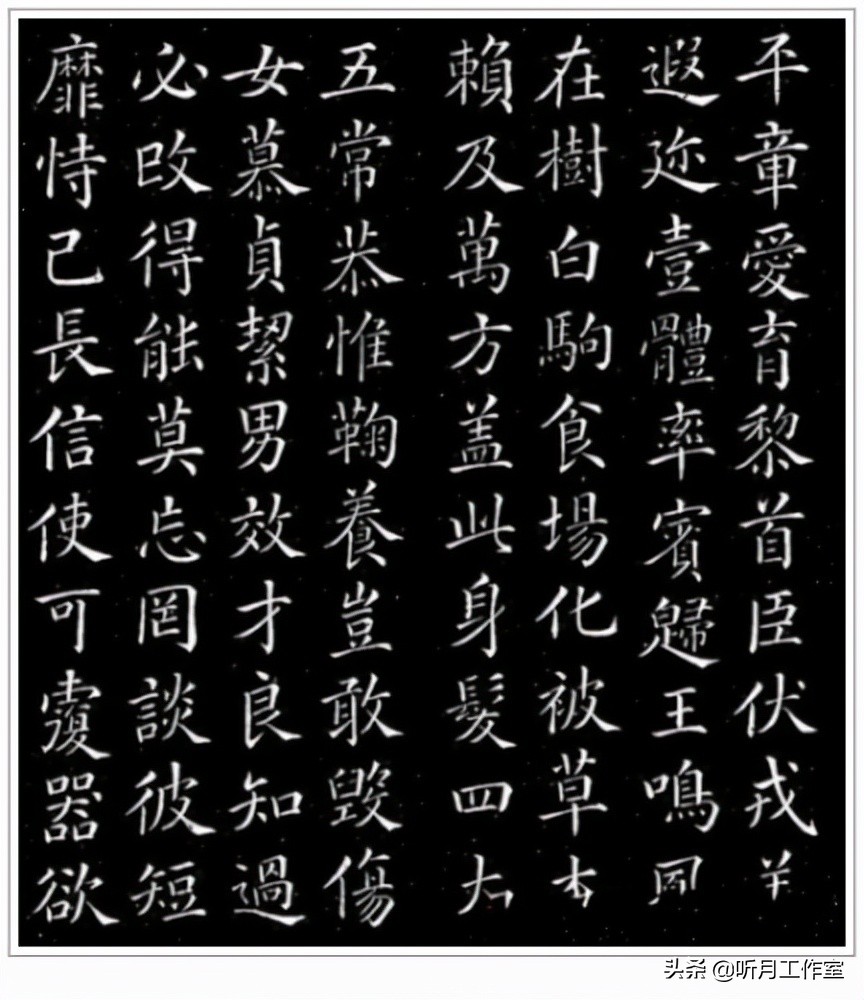 平章愛育黎首臣伏戎
遐迩壹體率賓歸王鳴
在樹白駒食場化被草木
賴及萬方盖此身髮四大
五常恭惟鞠養豈敢毀傷
女慕貞絜男效才良知過
必改得能莫忘罔談彼短
靡恃己長信使可覆器欲
头条 @听月工作室